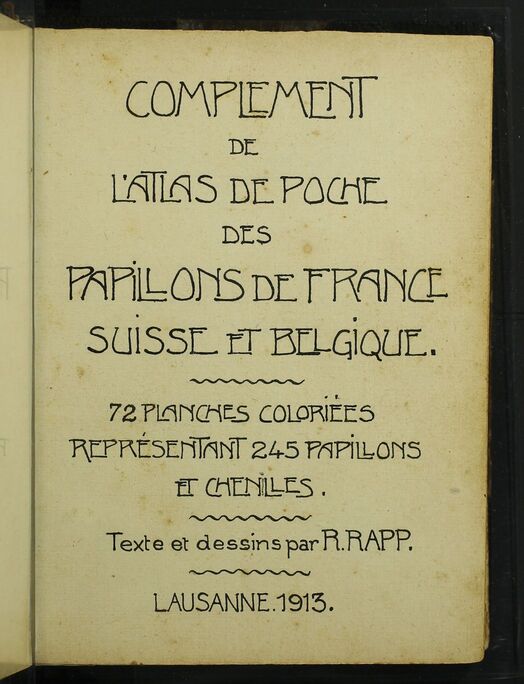 COMPLEMENT
DE
L'ATLAS DE POCHE
DES
PAPILLONS DE FRANCE
SUISSE ET BELGIQUE.
72 PLANCHES COLORIÉES
REPRÉSENTANT 245 PAPILLONS
ET CHENILLES.
Texte et dessins par R. RAPP.
LAUSANNE. 1913.